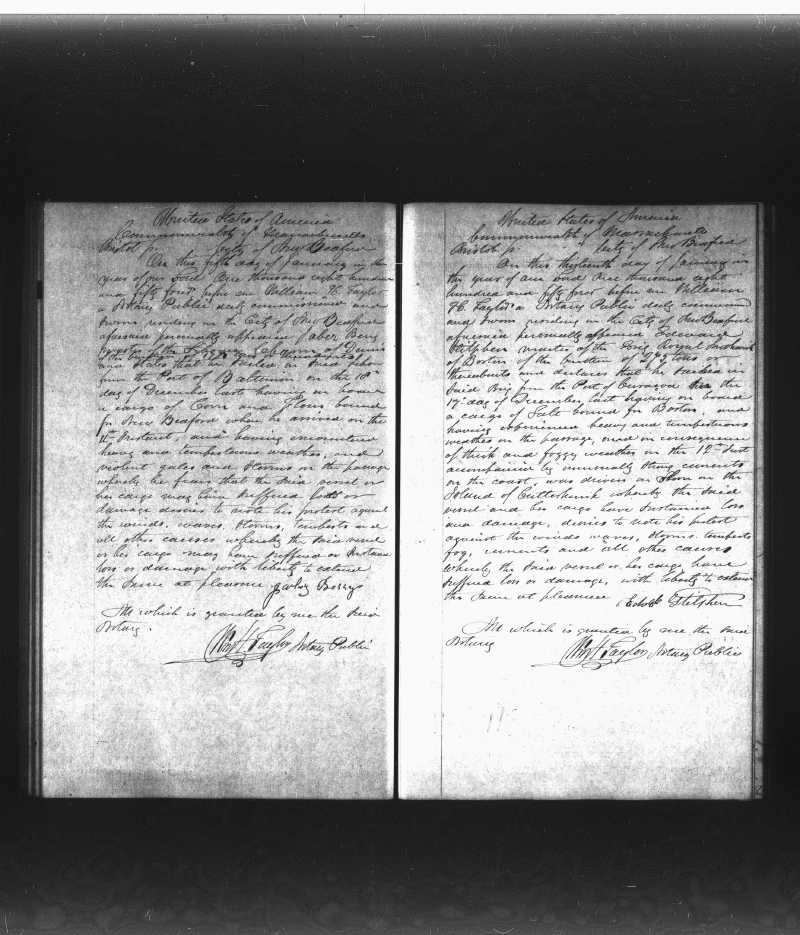 United States of America
Commonwealth of Massachusetts
Bristol ss. City of New Bedford
On this fifth day of January in the
year of our Lord One thousand eight hundred
and fifty four before me William H. Taylor
a Notary Public duly commissioned and
sworn residing in the City of New Bedford
aforesaid personally appeared Berry
of Dennis
and States that he sailed in said
from the Port of Baltimore on the 18th
day of December last having on board
a cargo of Corn and Flour bound
for New Bedford where he arrived on the
Instant, and having encountered
heavy and tempestuous weather, and
violent gales and storms on the passage
whereby he fears that the said vessel or
her cargo may have suffered loss or
damage desires to note his protest against
the winds, waves, storms, tempests and
all other causes whereby the said vessel
or her cargo may have suffered or sustained
loss or damage with liberty to extend
the same at pleasure Berry
All which is granted by me the said
Notary.
Wm H Taylor Notary Public
United States of America
Commonwealth of Massachusetts
Bristol ss. City of New Bedford
On this thirteenth day of January in
the year of our Lord One thousand eight
hundred and fifty four before me William
H. Taylor a Notary Public duly commissioned
and sworn residing in the City of New Bedford
aforesaid personally appeared Edward
master of the Brig Royal
of Boston of the burthen of 293 tons or
thereabouts and declares that he sailed in
said Brig from the Port of Curacoa on the
17th day of December last having on board
a cargo of Salt bound for Boston, and
having experienced heavy and tempestuous
weather on the passage, and in consequence
of thick and foggy weather on the 12th Inst
accompanied by unusually strong currents
on the coast, was driven on Shore on the
Island of Cuttehunk whereby the said
vessel and her cargo have sustained loss
and damage, desires to note his protest
against the winds waves, storms tempests
fog, currents and all other causes
whereby the said vessel or her cargo have
suffered loss or damage, with liberty to extend
the same at pleasure
All which is granted by me the said
Notary
Wm H Taylor Notary Public